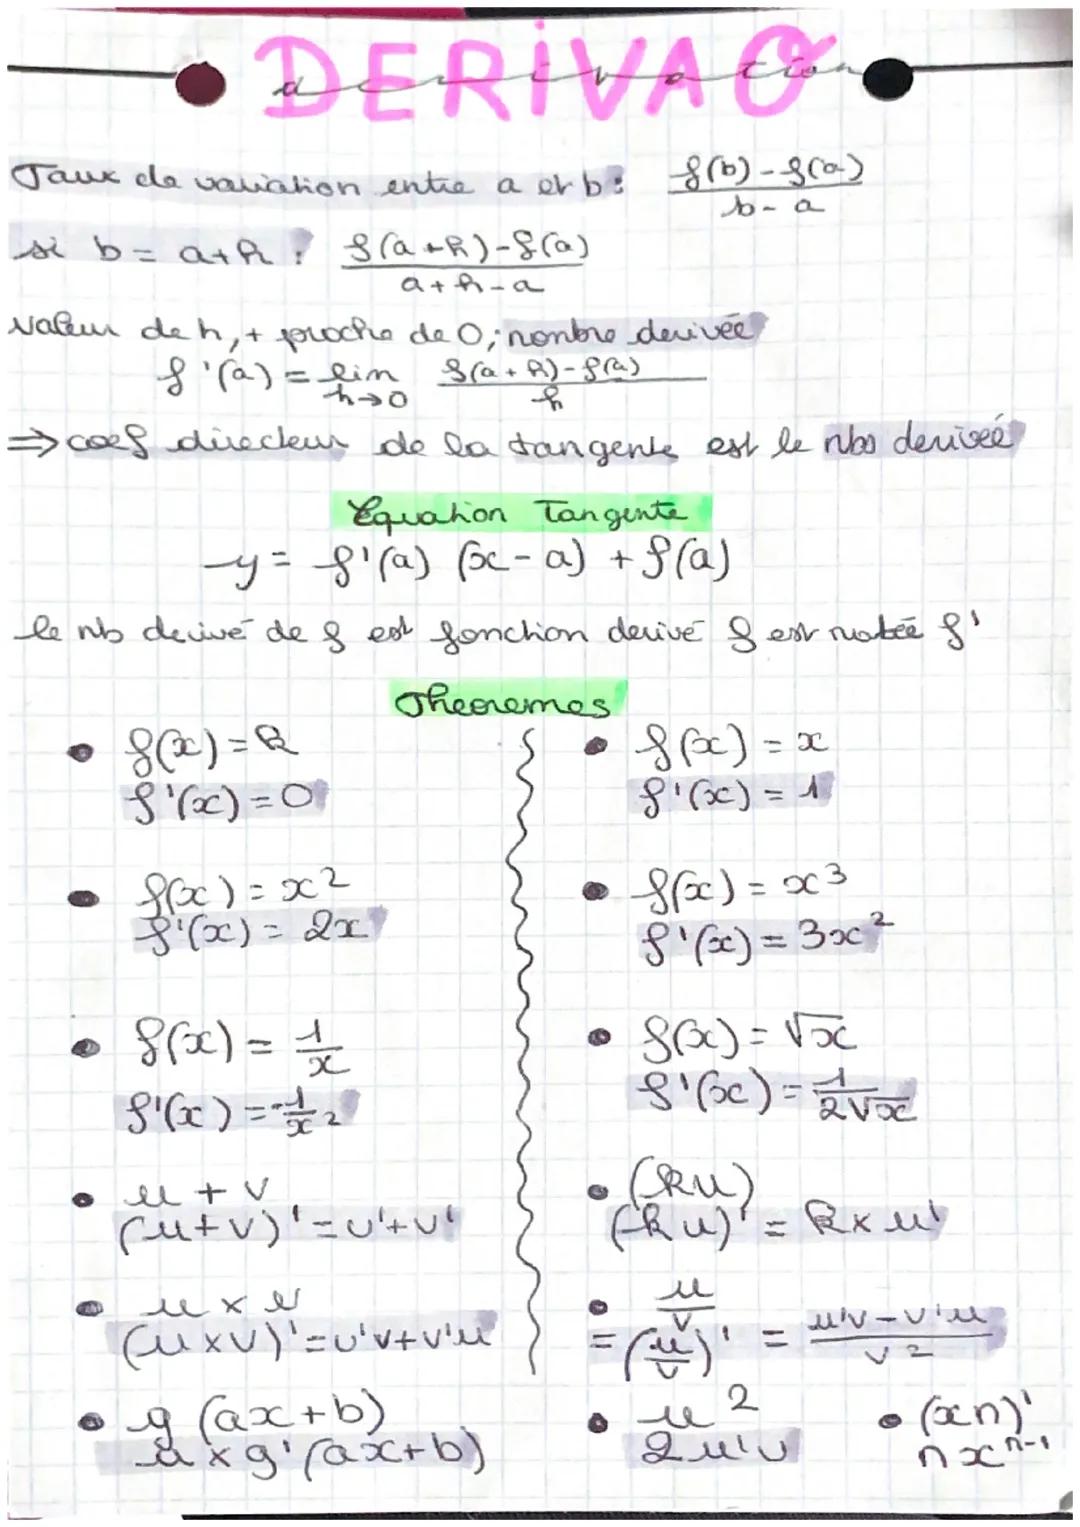 DERIVAO
derivation
Taux de variation entre a et b : f(b) - f(a) / b - a
si b = a+h : f(a+h) - f(a) / a+h-a
valeur de h, + proche de 0 ; nonbre derivée
f'(a) = lim h→0 f(a+h) - f(a) / h
⇒ coef directeur de la tangente est le nbs derivée
Equation Tangente
y = f'(a) (x - a) + f(a)
le nb derivé de f est fonction derivé f est notée f'
Theoremes
• f(x) = k
f'(x) = 0
• f(x) = x
f'(x) = 1
• f(x) = x²
f'(x) = 2x
• f(x) = x³
f'(x) = 3x²
• f(x) = 1/x
f'(x) = -1/x²
• f(x) = √x
f'(x) = 1/2√x
• u + v
(u+v)' = u'+v'
• (ku)
(ku)' = k x u'
• u x v
(u x v)' = u'v + v'u
• u/v
= (u/v)' = u'v - v'u / v²
• g (ax+b)
a x g'(ax+b)
• u²
2u'u
• (xn)'
n xⁿ⁻¹